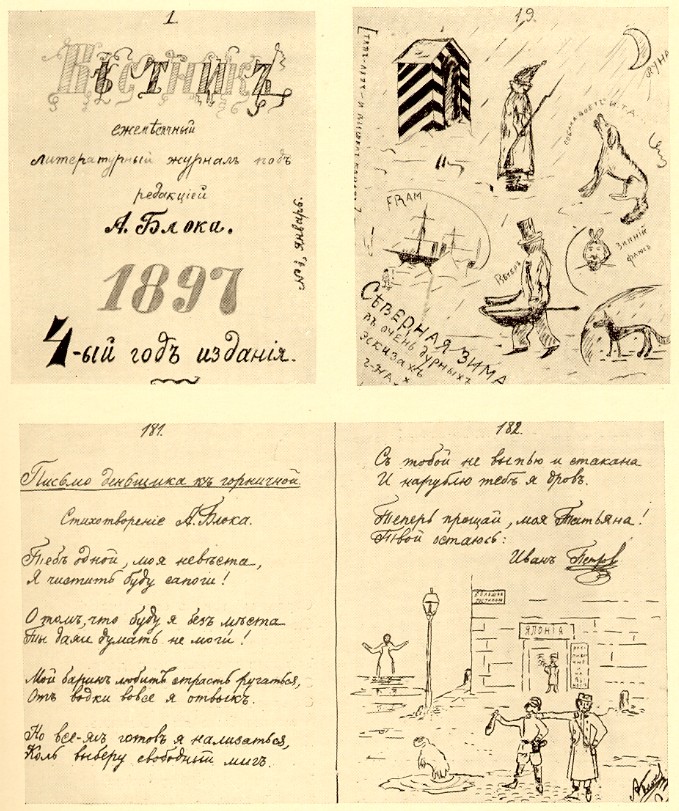 1.
Вѣстникъ
ежемѣсячный
литературный журналъ подъ
редакціей
А. Блока.
№ 1, январь.
1897
4-ый годъ изданія.
19.
ЛУНА
СОБАКА ВОЕТЪ И Т. Д.
FRAM
ЗИМНІЙ
СѢВЕРНАЯ ЗИМА
ВЪ ОЧЕНЬ ДУРНЫХЪ
ЭСКИЗАХЪ
Г-НА
181.
Письмо деньщика къ горничной
Стихотвореніе А. Блока.
Тебѣ одной, моя невѣста,
Я чистить буду сапоги!
О томъ, что буду я безъ мѣста
Ты даже думать не моги!
Мой баринъ любитъ страсть ругаться,
Отъ водки вовсе я отвыкъ.
Но все-жъ готовъ я нализаться,
Коль выберу свободный мигъ.
182.
Съ тобой не выпью и стакана
И нарублю тебѣ я дровъ.
Теперь прощай, моя Татьяна!
Твой остаюсь:
Иванъ Петров
ЯПОНІЯ